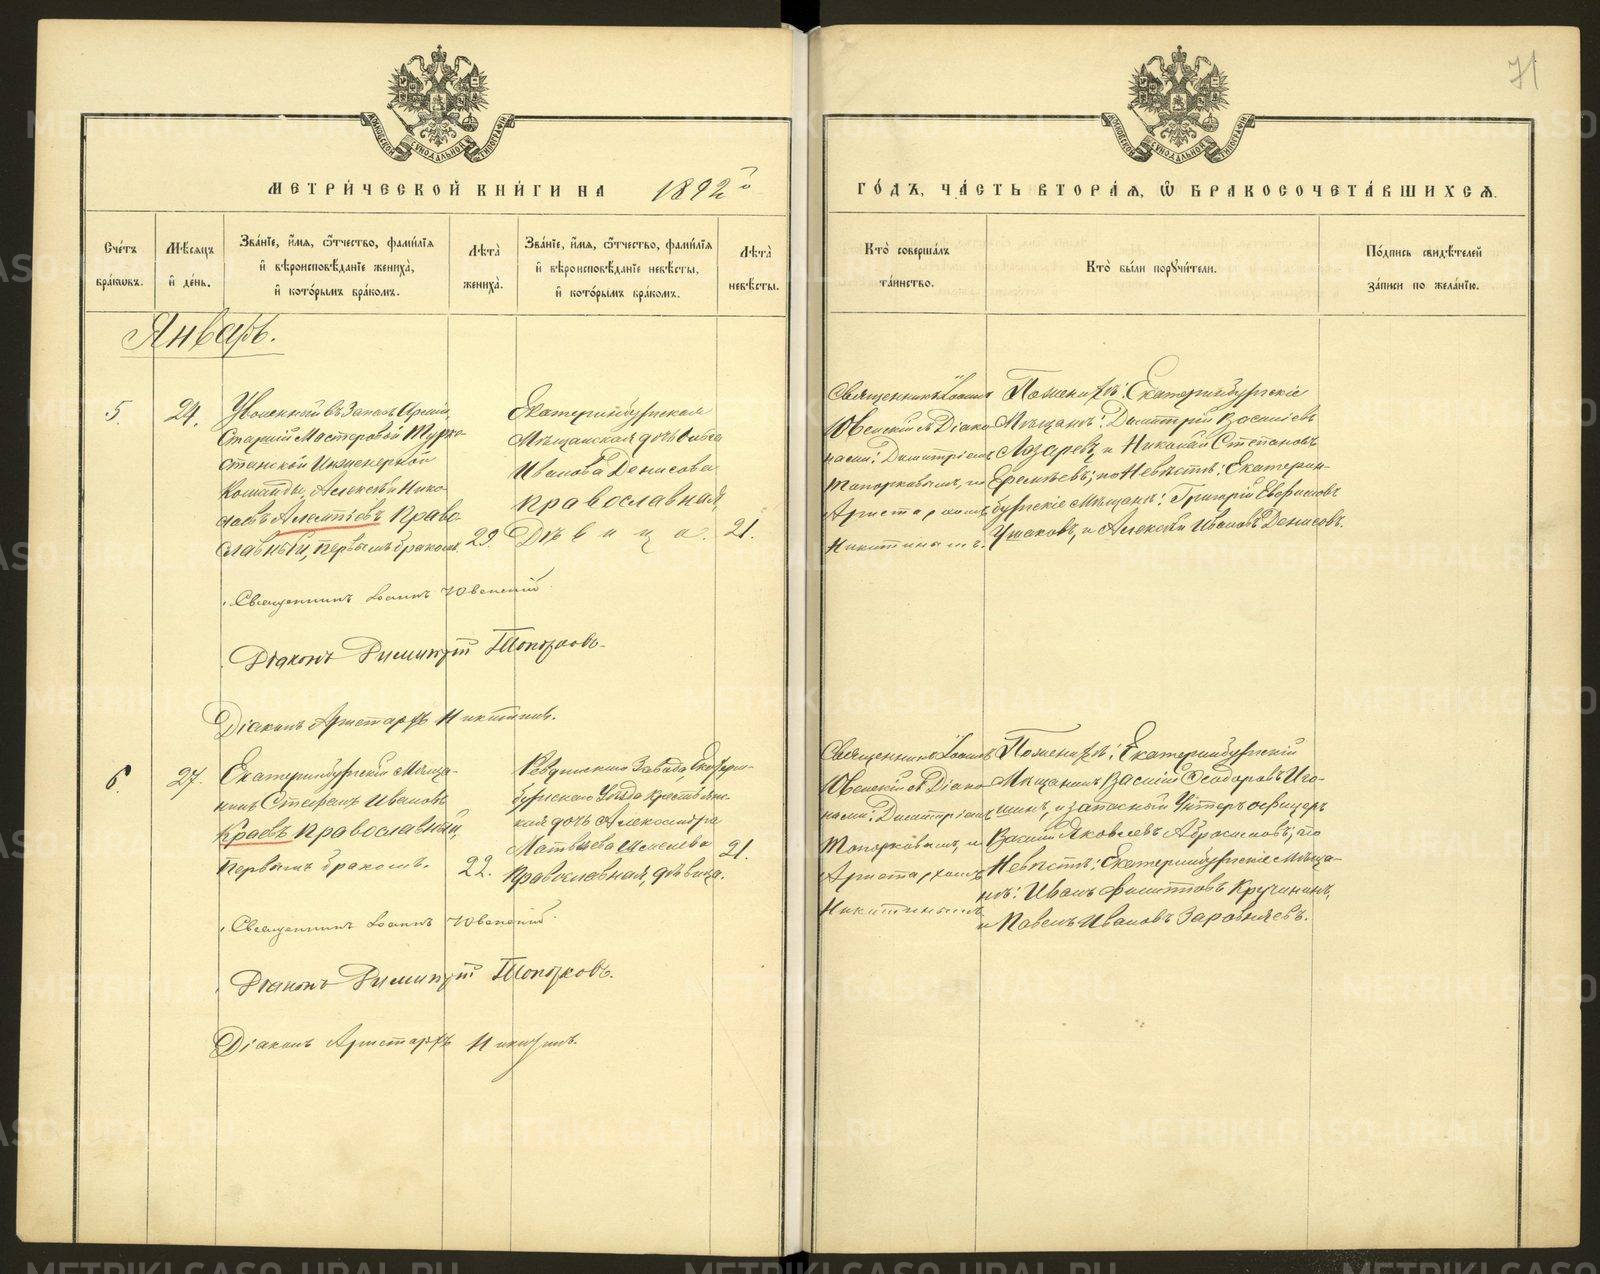 71
ДУХОВСКОЙ СѴНОДАЛЬНОЙ ТИПОГРАФІИ
ДУХОВСКОЙ СѴНОДАЛЬНОЙ ТИПОГРАФІИ
МЕТРИ́ЧЕСКОЙ КНИ́ГИ НА 1892 го
ГО́ДЪ, ЧА́СТЬ ВТОРА́Я, Ѡ БРАКОСОЧЕТА́ВШИХСѦ.
Сче́тъ бра́кωвъ.
Мѣ́сѧцъ и҆ де́нь.
Зва́нїе, и҆́мѧ, ѻ҆́тчество, фамѝлїѧ и҆ вѣроисповѣ́данїе жениха̀, и҆ кото́рымъ бра́комъ.
Лѣта̀ жениха̀.
Зва́нїе, и҆́мѧ, ѻ҆́тчество, фамѝлїѧ и҆ вѣроисповѣ́данїе невѣ́сты, и҆ кото́рымъ бра́комъ.
Лѣта̀ невѣ́сты.
Кто̀ соверша́лъ та́инство.
Кто̀ бы́ли порꙋчи́тели.
По́дпись свидѣ́телей за́писи по жела́нїю.
Январь.
5.
24.
Уволенный въ Запасъ Арміи
Старшій Мастеровой Турке-
станской Инженерной
Команды, Алексѣй Нико-
лаевъ Алентіевъ Право-
славный, первымъ бракомъ.
29.
Екатеринбургская
Мѣщанская дочь
Иванова Денисова
православная,
Дѣвица.
21.
Священникъ Іоаннъ
Ювенскій съ Діако-
нами: Димитріемъ
Топорковымъ, и
Аристархомъ
Никитинымъ.
По женихѣ: Екатеринбургскіе
Мѣщане: Димитрій Васильевъ
Лазаревъ, и Николай Степановъ
Еремѣевъ; по Невѣстѣ: Екатерин-
бургскіе Мѣщане: Григорій Евфимовъ
Ушаковъ, и Алексѣй Ивановъ Денисовъ.
Священникъ Іоаннъ Ювенскій
Діаконъ Димитрій Топорковъ.
Діаконъ Аристархъ Никитинъ.
6.
27.
Екатеринбургскій Мѣща-
нинъ Стефанъ Ивановъ
Краевъ Православный,
первымъ бракомъ.
22.
Ревдинскаго Завода, Екатерин-
бургскаго Уѣзда крестьянс-
кая дочь Александра
Матвѣева
Православная, дѣвица.
21.
Священникъ Іоаннъ
Ювенскій съ Діако-
нами: Димитріемъ
Топорковымъ, и
Аристархомъ
Никитинымъ
По женихѣ: Екатеринбургскій
Мѣщанинъ Василій Ѳеодоровъ Иго-
шинъ, и запасный Унтеръ офицеръ
Василій Яковлевъ Абросимовъ; по
Невѣстѣ: Екатеринбургскіе Мѣща-
не: Иванъ Филипповъ Кручининъ,
и Павелъ Ивановъ Заровняевъ.
Священникъ Іоаннъ Ювенскій.
Діаконъ Димитрій Топорковъ.
Діаконъ Аристархъ Никитинъ.
METRIKI.GASO-URAL.RU